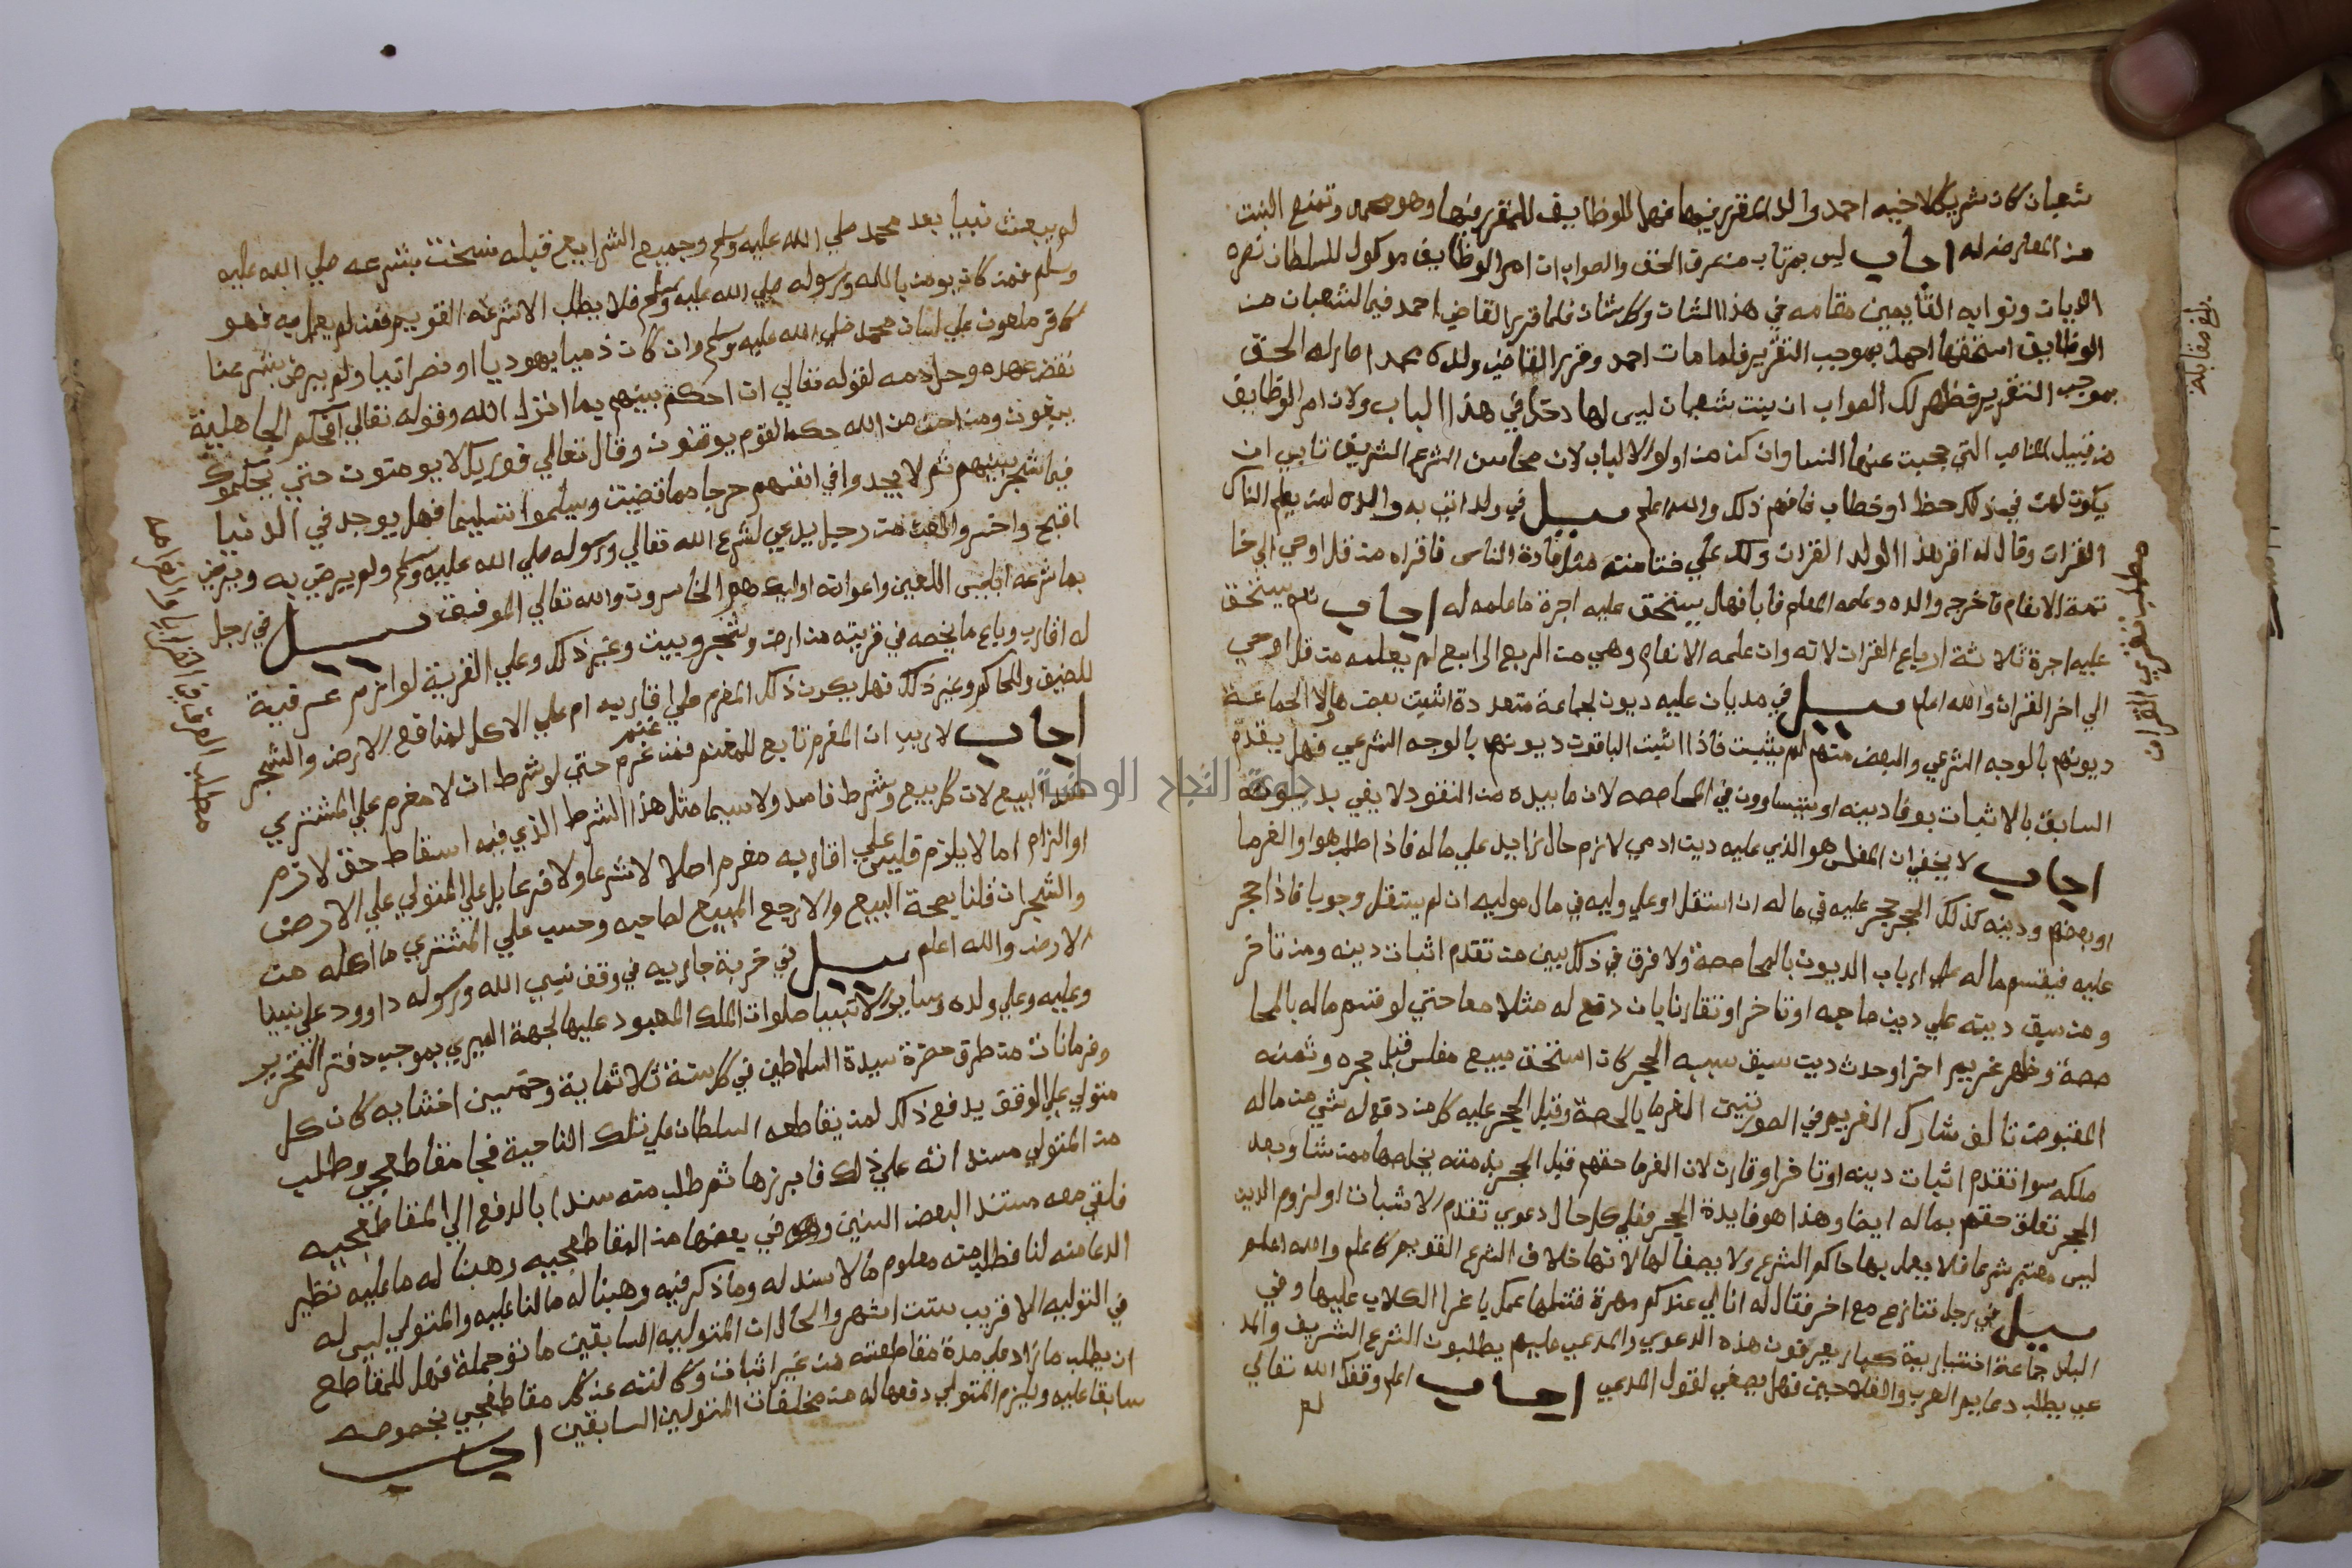 شعبان كان شريكا لاخيه احمد والد المقرر فيها فهل الوظايف للمقرر فيها وهو محمد وتمنع البنت
من المعارضه له اجاب ليس يرتاب من عرف الحق والصواب ان امر الوظايف موكول للسلطان نصره
الديان ونوابه القايمين مقامه في هذا الشان وكل شان فلما قرر القاضي احمد فيما لشعبان من
الوظايف استحقها احمد بموجب التقرير فلما مات احمد وقرر القاضي ولده محمدا صار له الحق
بموجب التقرير فظهر لك الصواب ان بنت شعبان ليس لها دخل في هذا الباب ولان امر الوظايف
من قبيل المناصب التي حجبت عنها النسا وان كن من اولو الالباب لان محاسن الشرع الشريف تابى ان
يكون لهن في ذلك حظ او خطاب فافهم ذلك والله اعلم سيل في ولد اتى به والده لمن يعلم الناس
القران وقال له اقري هذا الولد القران ولك علي ختامنه مثل عادة الناس فاقراه من قل اوحي الى خا
تمة الانعام فاخرجه والده وعلمه المعلم فابا فهل يستحق عليه اجرة ما علمه له اجاب نعم يستحق
عليه اجرة ثلاثة ارباع القران لانه وان علمه الانعام وهي من الربع الرابع لم يعلمه من قل اوحي
الى اخر القران والله اعلم سيل في مديان عليه ديون لجماعة متعددة اثبت بعض هولا الجماعة
ديونهم بالوجه الشرعي والبعض منهم لم يثبت فاذا اثبت الباقون ديونهم بالوجه الشرعي فهل يقدم
السابق بالاثبات بوفا دينه او يتساوون في المحاصصه لان ما بيده من النقود لا يفي بديونه
اجاب لا يخفى ان المفلس هو الذي عليه دين ادمي لازم حال زايد على ماله فاذا طلب هو او الغرما
او بعضهم ودينه كذلك الحجر حجر عليه في ماله ان استقل او على وليه في مال موليه ان لم يستقل وجوبا فاذا حجر
عليه فيقسم ماله على ارباب الديون بالمحاصصة ولا فرق في ذلك بين من تقدم اثبات دينه ومن تاخر
ومن سبق دينه على دين صاحبه او تاخر او تقارنا بان دفع له مثلا معا حتى لو قسم ماله بالمحا
صصة وظهر غريم اخر او حدث دين سبق سببه الحجر كان استحق مبيع مفلس قبل حجره وثمنه
المقبوض تالف شارك الغريم في الصورتين الغرما بالحصة وقبل الحجر عليه كل من دفع له شي من ماله
ملكه سوا تقدم اثبات دينه او تاخر او قارن لان الغرما حقهم قبل الحجر بذمته يخلصها ممن شا وبعد
الحجر تعلق حقهم بماله ايضا وهذا هو فايدة الحجر فعلى كل حال دعوى تقدم الاثبات او لزوم الدين
ليس معتبر شرعا فلا يعمل بها حاكم الشرع ولا يصغا لها لانها خلاف الشرع القويم كما علم والله اعلم
سيل في رجل تنازع مع اخر فقال له انا لي عندكم مهرة قتلها عمك يا خرا الكلاب عليها وفي
البلد جماعة اختيارية كبار يعرفون هذه الدعوى والمدعي عليهم يطلبون الشرع الشريف والمد
عي يطلب دعايم العرب والفلاحين فهل يصغي لقول المدعي اجاب اعلم وفقك الله تعالى
لم
بلغ مقابلة
مطلب تقري القران
لم يبعث نبيا بعد محمد صلى الله عليه وسلم وجميع الشرايع قبله نسخت بشرعه صلى الله عليه
وسلم فمن كان يومن بالله ورسوله صلى الله عليه وسلم فلا يطلب الا شرعه القويم فمن لم يعمل به فهو
كافر ملعون على لسان محمد صلى الله عليه وسلم وان كان ذميا يهوديا او نصرانيا ولم يرض بشرعنا
نقض عهده وحل دمه لقوله تعالى ان احكم بينهم بما انزل الله وقوله تعالى افحكم الجاهلية
يبغون ومن احسن من الله حكما لقوم يوقنون وقال تعالى فوربك لا يومنون حتى يحكموك
فيما شجر بينهم ثم لا يجدوا في انفسهم حرجا مما قضيت ويسلموا تسليما فهل يوجد في الدنيا
اقبح واخسر والعن من رجل يدعى لشرع الله تعالى ورسوله صلى الله عليه وسلم ولم يرض به ويرضى
بما شرعه ابليس اللعين واعوانه اوليك هم الخاسرون والله تعالى الموفق سيل في رجل
له اقارب وباع ما يخصه في قريته من ارض وشجر وبيت وغير ذلك وعلى القرية لوازم عرفية
للضيف وللحاكم وغير ذلك فهل يكون ذلك المغرم على اقاربه ام على الاكل لمنافع الارض والشجر
اجاب لا ريب ان المغرم تابع للمغنم فمن غنم غرم حتى لو شرط ان لا مغرم على المشتري
فسد البيع لان كل بيع وشرط فاسد ولا سيما مثل هذا الشرط الذي فيه اسقاط حق لازم
او التزام ما لا يلزم فليس على اقاربه مغرم اصلا لا شرعا ولا فرعا بل على المتولي على الارض
والشجر ان قلنا بصحة البيع والا رجع المبيع لصاحبه وحسب على المشتري ما اكله من
الارض والله اعلم سيل في خربة جاريه في وقف نبي الله ورسوله داوود على نبينا
وعليه وعلى ولده وساير الانبيا صلوات الملك المعبود عليها لجهة الميري بموجب دفتر التحرير
وفرمانات من طرف حضرة سيدة السلاطين في كل سنة ثلاثماية وخمسين اخشايه كان كل
متولي على الوقف يدفع ذلك لمن يقاطعه السلطان على تلك الناحية فجا مقاطعجي وطلب
من المتولي مستندا انه على ذلك فابرزها ثم طلب منه سندا بالدفع الى المقاطعجيه
فلقي معه مستند البعض السنين وهو في بعضها من المقاطعجيه وهبنا له ما عليه نظير
الدعا منه لنا فطلب منه معلوم ما لا سند له وما ذكر فيه وهبنا له ما لنا عليه والمتولي ليس له
في التوليه الا قريب ستت اشهر والحال ان المتوليه السابقين ماتو جملة فهل للمقاطع
ان يطلب ما زاد على مدة مقاطعته من غير اثبات وكالته عن كل مقاطعجي بخصوصه
سابقا عليه ويلزم المتولي دفعها له من مخلفات المتولين السابقين اجاب
جامعة النجاح الوطنية